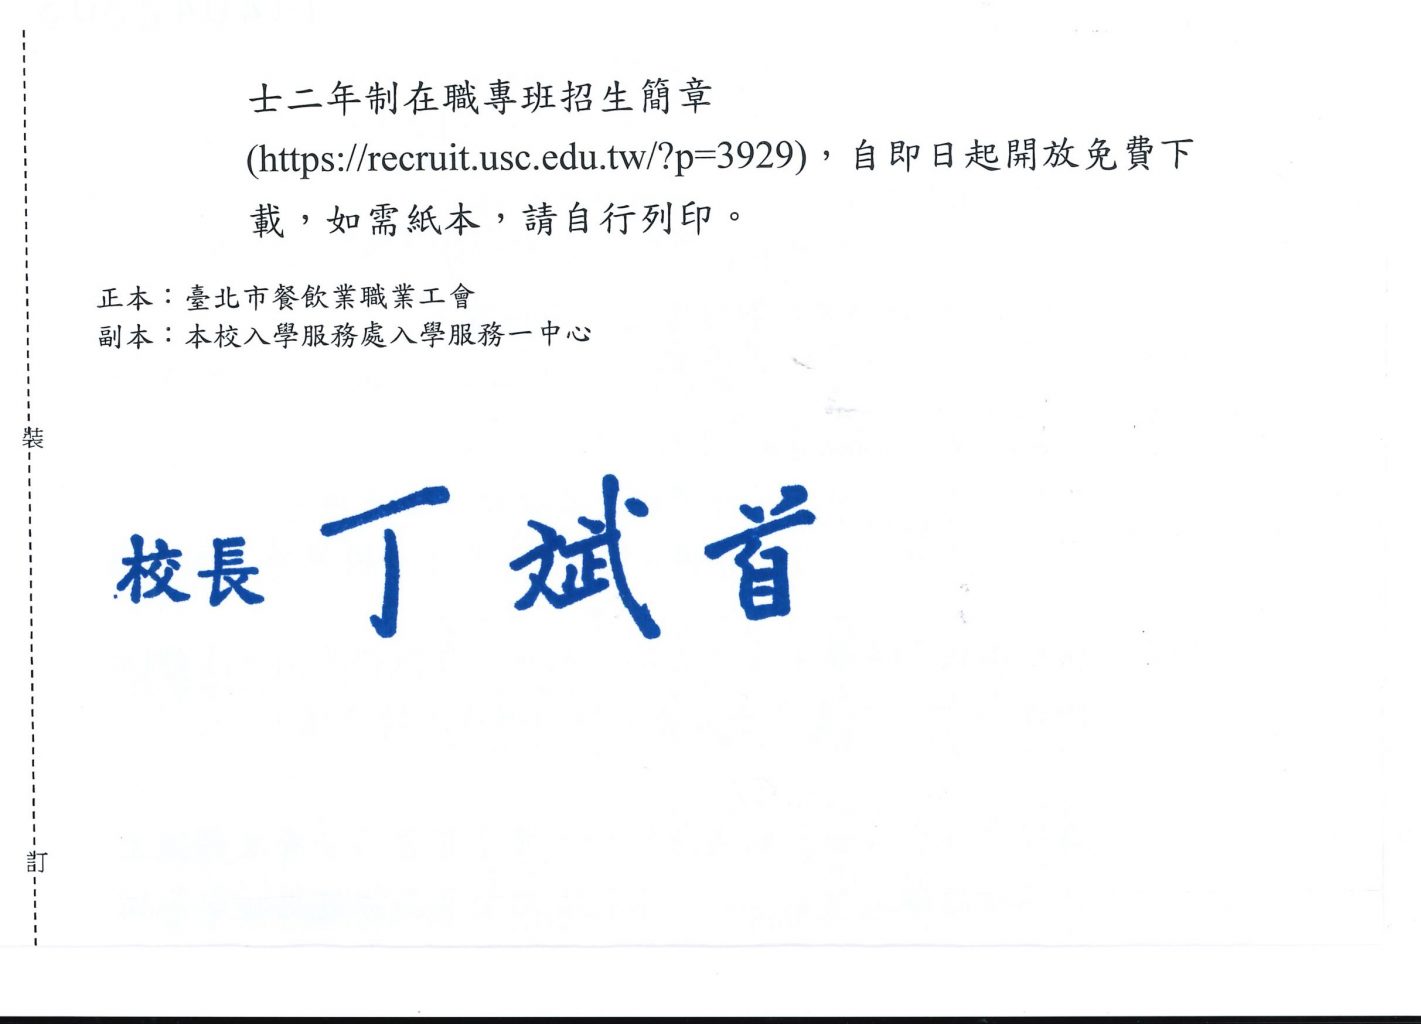 士二年制在職專班招生簡章
(https://recruit.usc.edu.tw/?p=3929)，自即日起開放免費下
載，如需紙本，請自行列印。
正本：臺北市餐飲業職業工會
副本：本校入學服務處入學服務一中心
裝
校長 丁斌首
訂